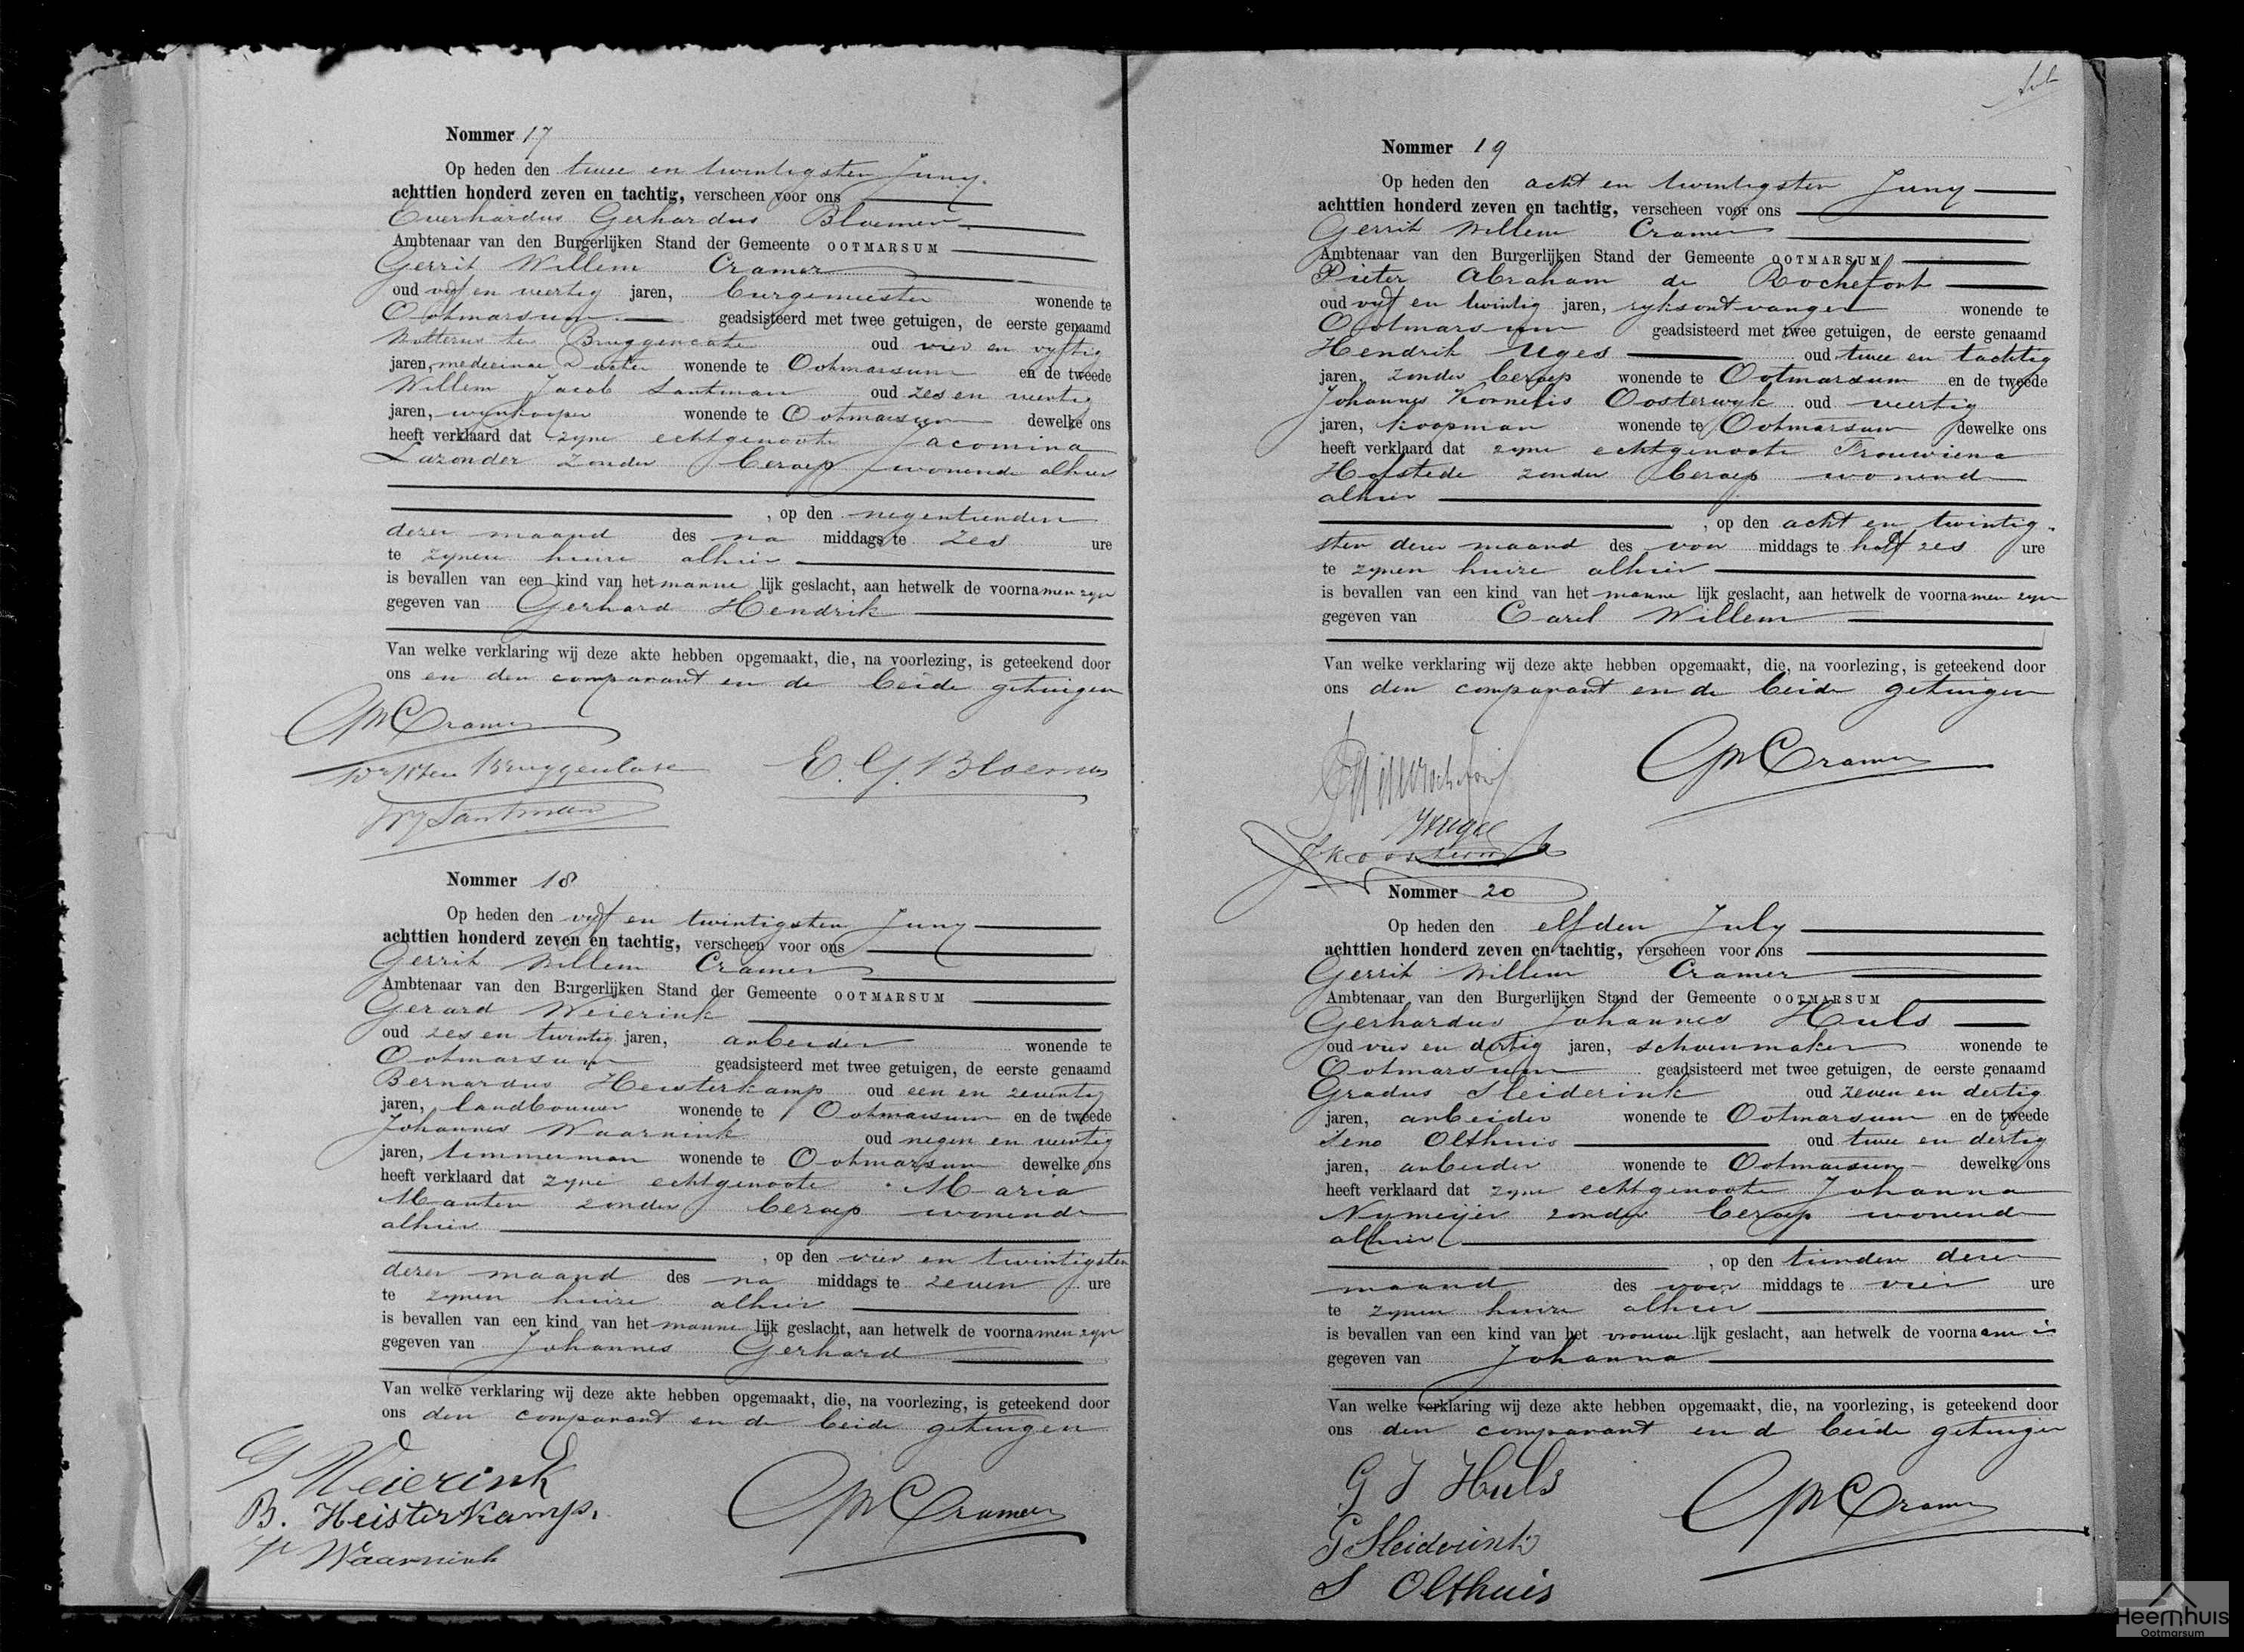 Nommer 17
Op heden den twee en twintigsten Juny
achttien honderd zeven en tachtig, verscheen voor ons
Everhardus Gerhardus Bloemen
Ambtenaar van den Burgerlijken Stand der Gemeente OOTMARSUM
Gerrit Willem Cramer
oud vyf en veertig jaren, burgemeester wonende te
Ootmarsum geadsisteerd met twee getuigen, de eerste genaamd
Wolterus ten Bruggencate oud vier en vyftig
jaren, medicinae Docter wonende te Ootmarsum en de tweede
Willem Jacob Santman oud zes en veertig
jaren, wynkooper wonende te Ootmarsum dewelke ons
heeft verklaard dat zyne echtgenoote Jacomina
Lazonder zonder beroep wonende alhier
, op den negentienden
dezer maand des na middags te zes ure
te zynen huize alhier
is bevallen van een kind van het manne lijk geslacht, aan hetwelk de voornamen zyn
gegeven van Gerhard Hendrik
Van welke verklaring wij deze akte hebben opgemaakt, die, na voorlezing, is geteekend door
ons en den comparant en de beide getuigen
GWCramer
ten Bruggencate E. G. Bloemen
WJSantman
Nommer 18
Op heden den vyf en twintigsten Juny
achttien honderd zeven en tachtig, verscheen voor ons
Gerrit Willem Cramer
Ambtenaar van den Burgerlijken Stand der Gemeente OOTMARSUM
Gerard Weierink
oud zes en twintig jaren, arbeider wonende te
Ootmarsum geadsisteerd met twee getuigen, de eerste genaamd
Bernardus Heisterkamp oud een en zeventig
jaren, landbouwer wonende te Ootmarsum en de tweede
Johannes Waarnink oud negen en veertig
jaren, timmerman wonende te Ootmarsum dewelke ons
heeft verklaard dat zyne echtgenoote Maria
Manten zonder beroep wonende
alhier
, op den vier en twintigsten
dezer maand des na middags te zeven ure
te zynen huize alhier
is bevallen van een kind van het manne lijk geslacht, aan hetwelk de voornamen zyn
gegeven van Johannes Gerhard
Van welke verklaring wij deze akte hebben opgemaakt, die, na voorlezing, is geteekend door
ons den comparant en de beide getuigen
G Weierink
B. Heisterkamp. GWCramer
Waarnink
Nommer 19
Op heden den acht en twintigsten Juny
achttien honderd zeven en tachtig, verscheen voor ons
Gerrit Willem Cramer
Ambtenaar van den Burgerlijken Stand der Gemeente OOTMARSUM
Pieter Abraham de Rochefort
oud vyf en twintig jaren, ryksontvanger wonende te
Ootmarsum geadsisteerd met twee getuigen, de eerste genaamd
Hendrik Uges oud twee en tachtig
jaren, zonder beroep wonende te Ootmarsum en de tweede
Johannes Kornelis Oosterwyk oud veertig
jaren, koopman wonende te Ootmarsum dewelke ons
heeft verklaard dat zyne echtgenoote Trouwiena
Hofstede zonder beroep wonend
alhier
, op den acht en twintig
sten dezer maand des voor middags te half zes ure
te zynen huize alhier
is bevallen van een kind van het manne lijk geslacht, aan hetwelk de voornamen zyn
gegeven van Carel Willem
Van welke verklaring wij deze akte hebben opgemaakt, die, na voorlezing, is geteekend door
ons den comparant en de beide getuigen
GWCramer
Nommer 20
Op heden den elfden July
achttien honderd zeven en tachtig, verscheen voor ons
Gerrit Willem Cramer
Ambtenaar van den Burgerlijken Stand der Gemeente OOTMARSUM
Gerhardus Johannes Huls
oud vier en dertig jaren, schoenmaker wonende te
Ootmarsum geadsisteerd met twee getuigen, de eerste genaamd
Gradus Sleiderink oud zeven en dertig
jaren, arbeider wonende te Ootmarsum en de tweede
Seno Olthuis oud twee en dertig
jaren, arbeider wonende te Ootmarsum dewelke ons
heeft verklaard dat zyne echtgenoote Johanna
Nymeijer zonder beroep wonend
alhier
, op den tienden dezer
maand des voor middags te vier ure
te zynen huize alhier
is bevallen van een kind van het vrouwe lijk geslacht, aan hetwelk de voornaam is
gegeven van Johanna
Van welke verklaring wij deze akte hebben opgemaakt, die, na voorlezing, is geteekend door
ons den comparant en d beide getuigen
G J Huls GWCramer
G Sleiderink
S Olthuis
Heemhuis
Ootmarsum